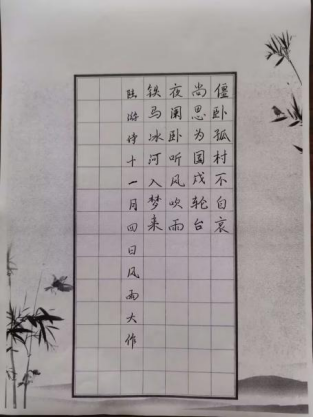 僵卧孤村不自哀
尚思为国戍轮台
夜阑卧听风吹雨
铁马冰河入梦来
陆游诗十一月四日风雨大作